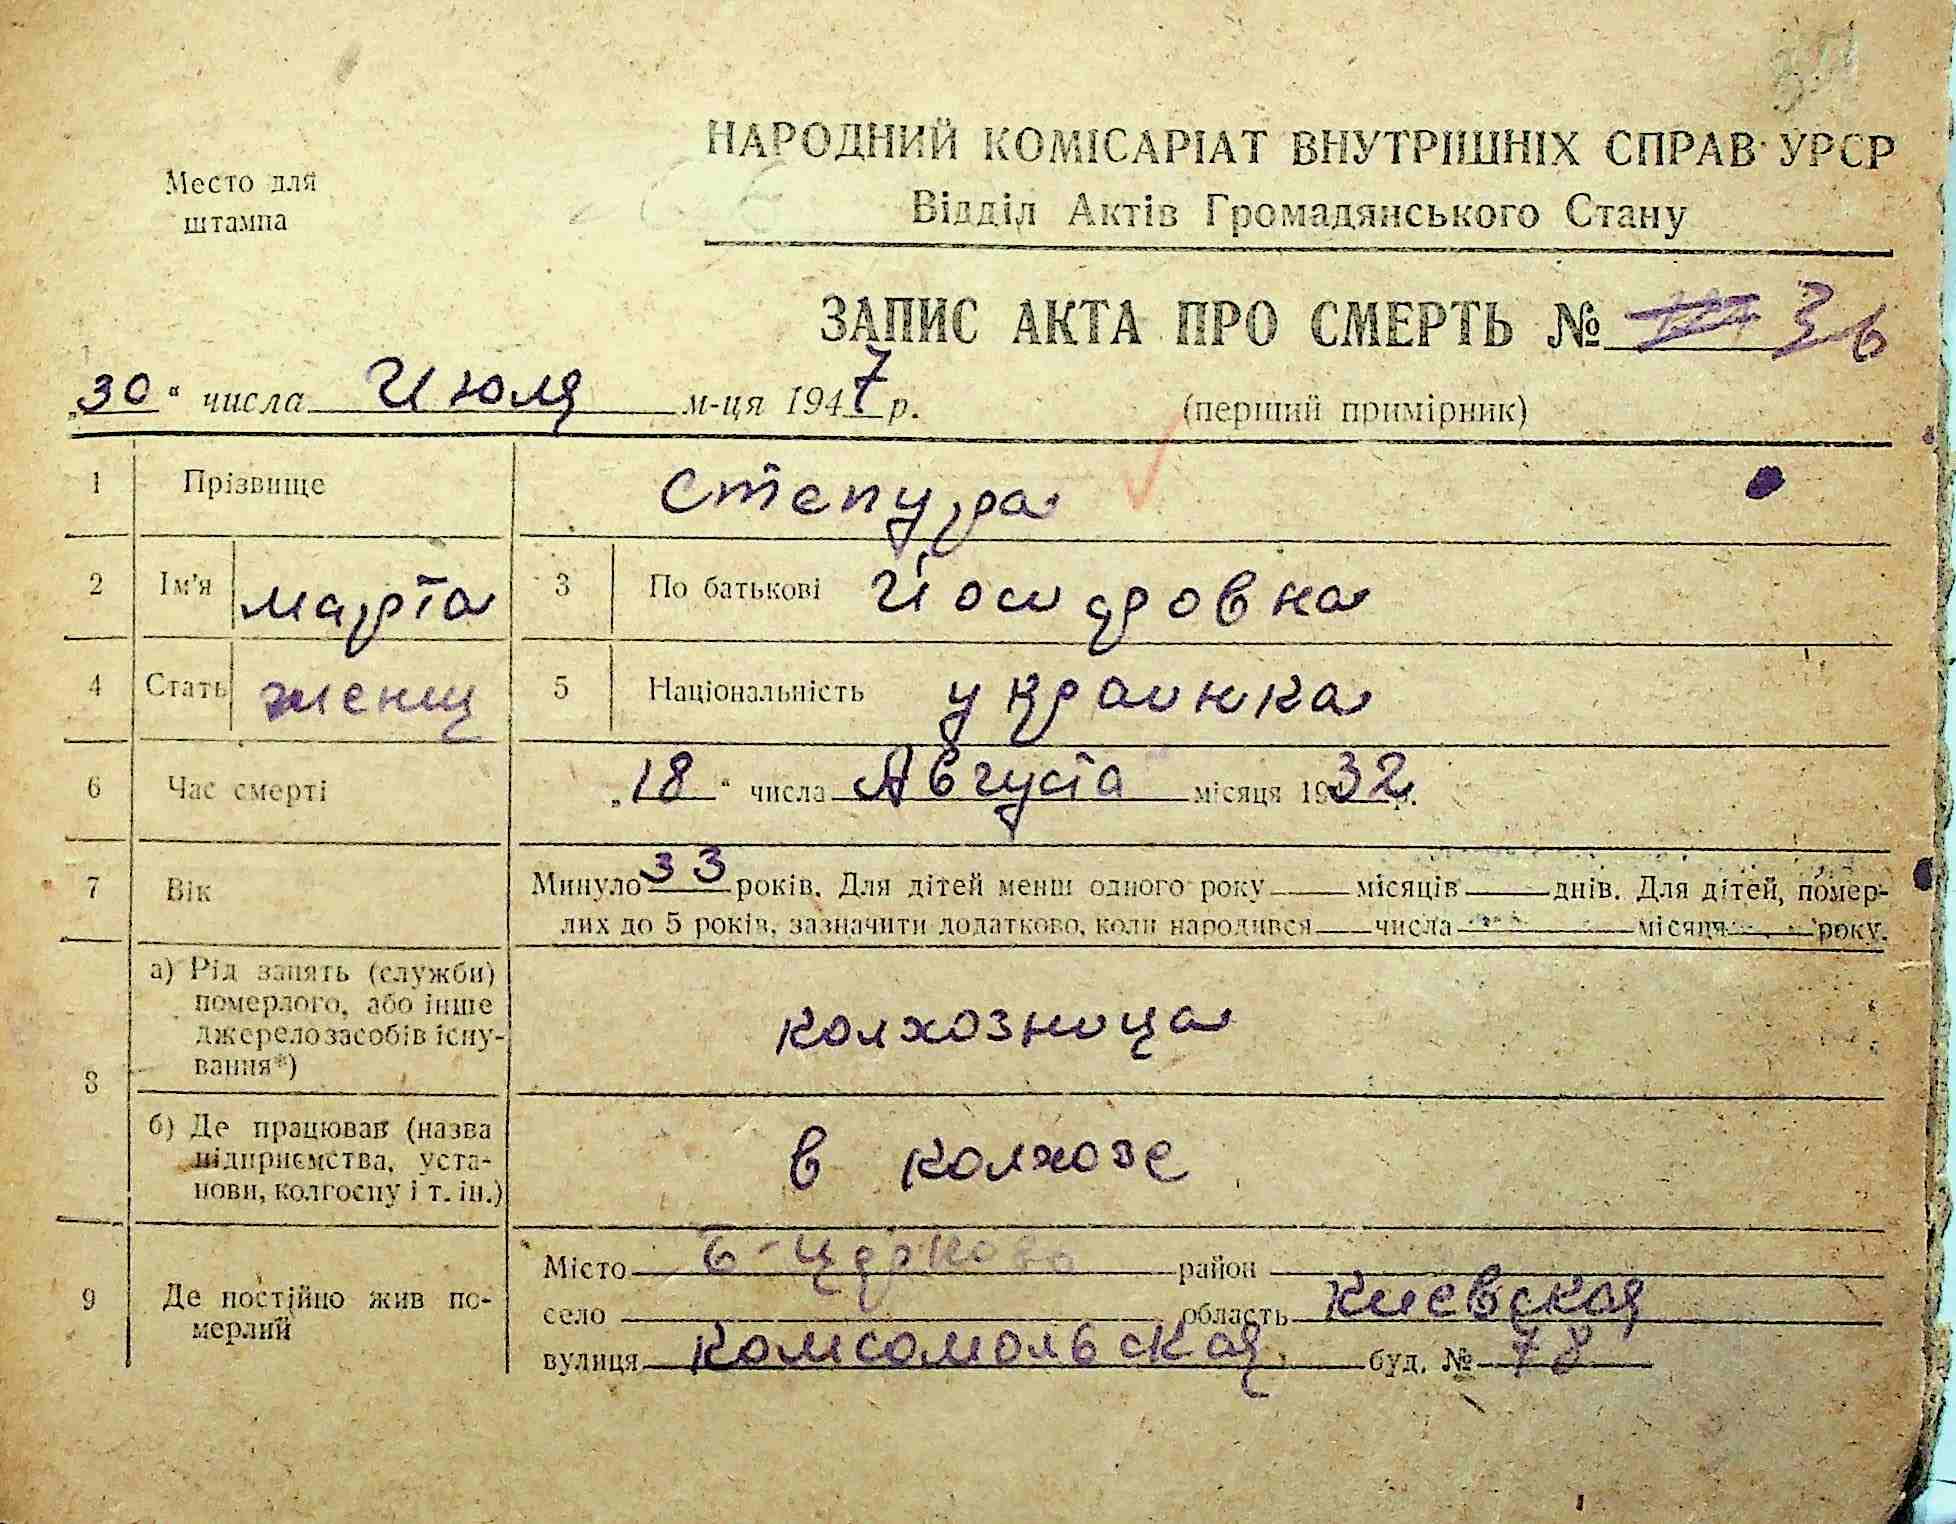 НАРОДНИЙ КОМІСАРІАТ ВНУТРІШНІХ СПРАВ УРСР
Место для
штампа
Відділ Актів Громадянського Стану
ЗАПИС АКТА ПРО СМЕРТЬ № 36
„30“ числа Июля м-ця 1947 р.
(перший примірник)
1 Прізвище Степура
2 Ім'я Марта 3 По батькові Йосифовна
4 Стать женщ 5 Національність украинка
6 Час смерті „18“ числа Августа місяця 1932 р.
7 Вік Минуло 33 років. Для дітей менш одного року місяців днів. Для дітей, помер-
лих до 5 років, зазначити додатково, коли народився числа місяця року.
8 а) Рід занять (служби)
померлого, або інше
джерело засобів існу-
вання*)
колхозница
б) Де працював (назва
підприємства, уста-
нови, колгоспу і т. ін.)
в колхозе
9 Де постійно жив по-
мерлий
Місто Б-Церковь район
село область Киевская
вулиця Комсомольская буд. № 78